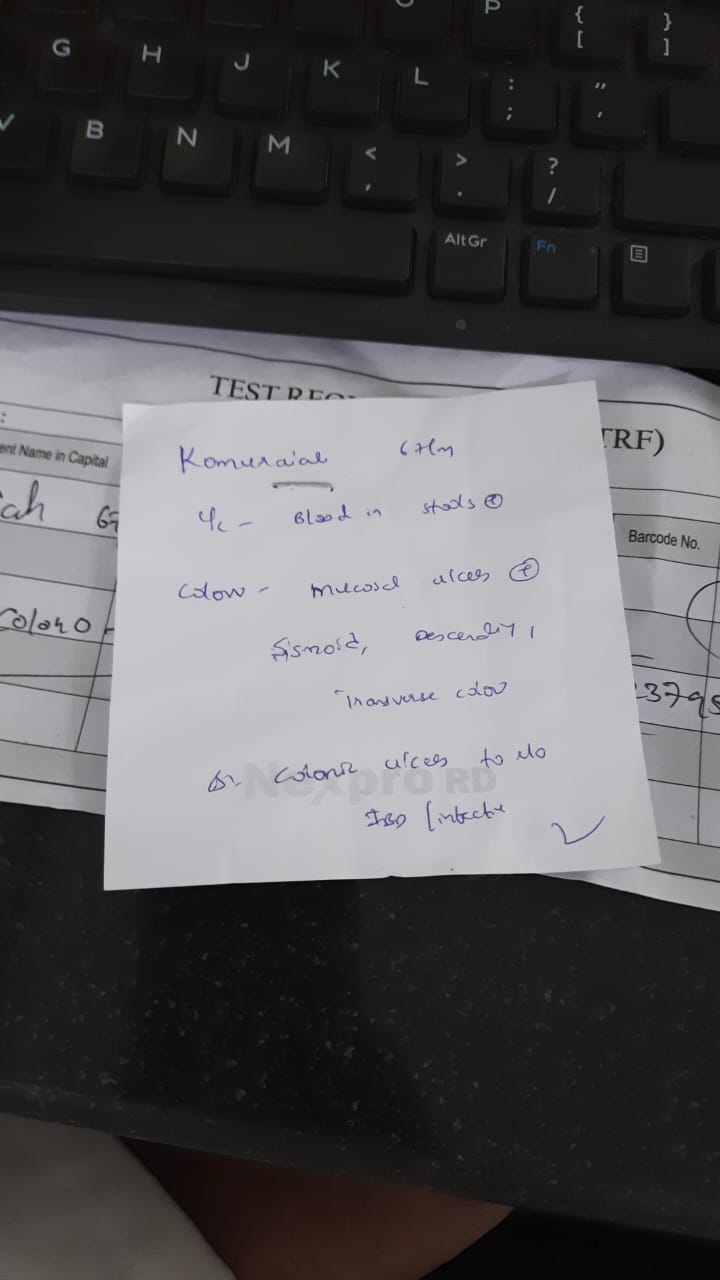 P
{
[
}
]
G H J K L : ; " ,
V B N M < , > . ? /
Alt Gr Fn
TEST RE
TRF)
ent Name in Capital
Barcode No.
iah 67
Colono
2379
Komuraiah 67/m
H/c - Blood in stools ⊕
Colon - mucosal ulcers ⊕
Sigmoid, Descending,
Transverse colon
Δ: Colonic ulcers to r/o
IBD / infective
Nexpro RD